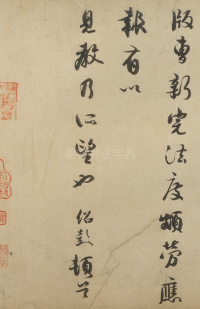 版専新完法度頗勞應
報有以
見教乃所望也紹彭頓首